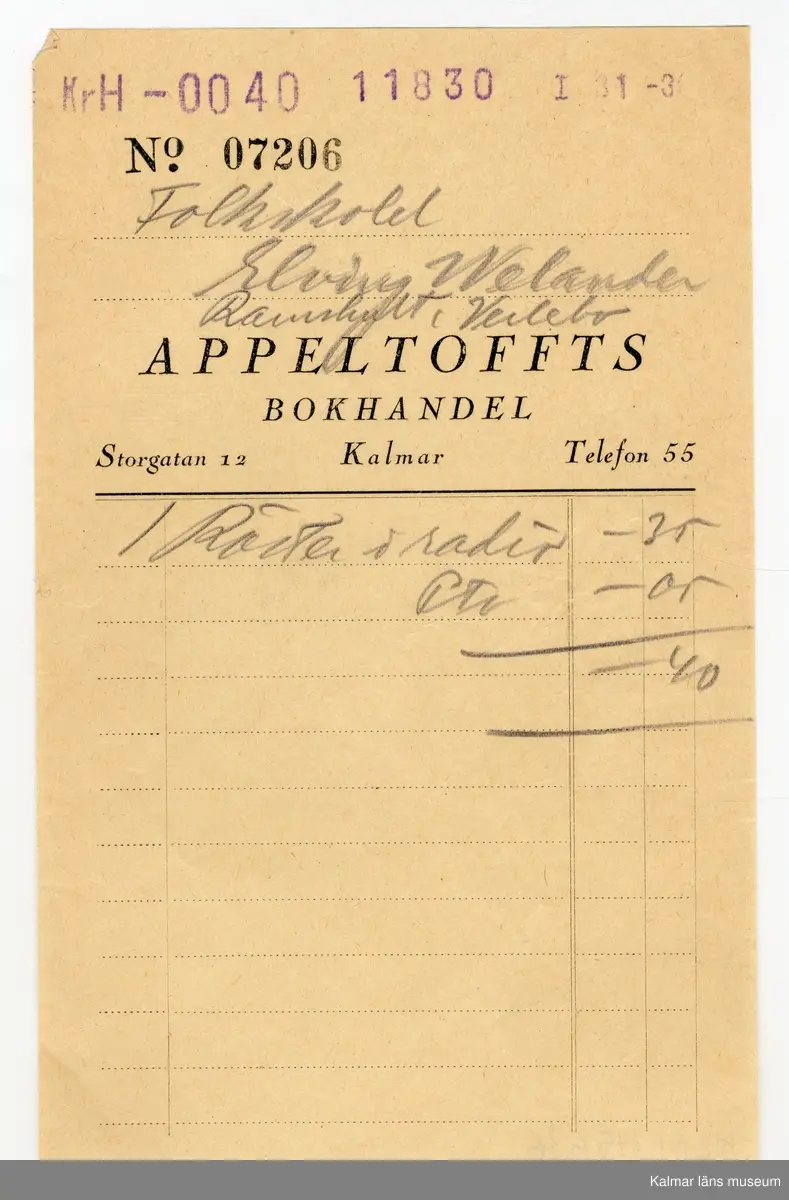 KrH -0040 11830 I 31 -3
No. 07206
Folkskol
Elving Welander
APPELTOFFTS
BOKHANDEL
Storgatan 12 Kalmar Telefon 55
1 Röster i radio -35
-05
-40
Kalmar läns museum